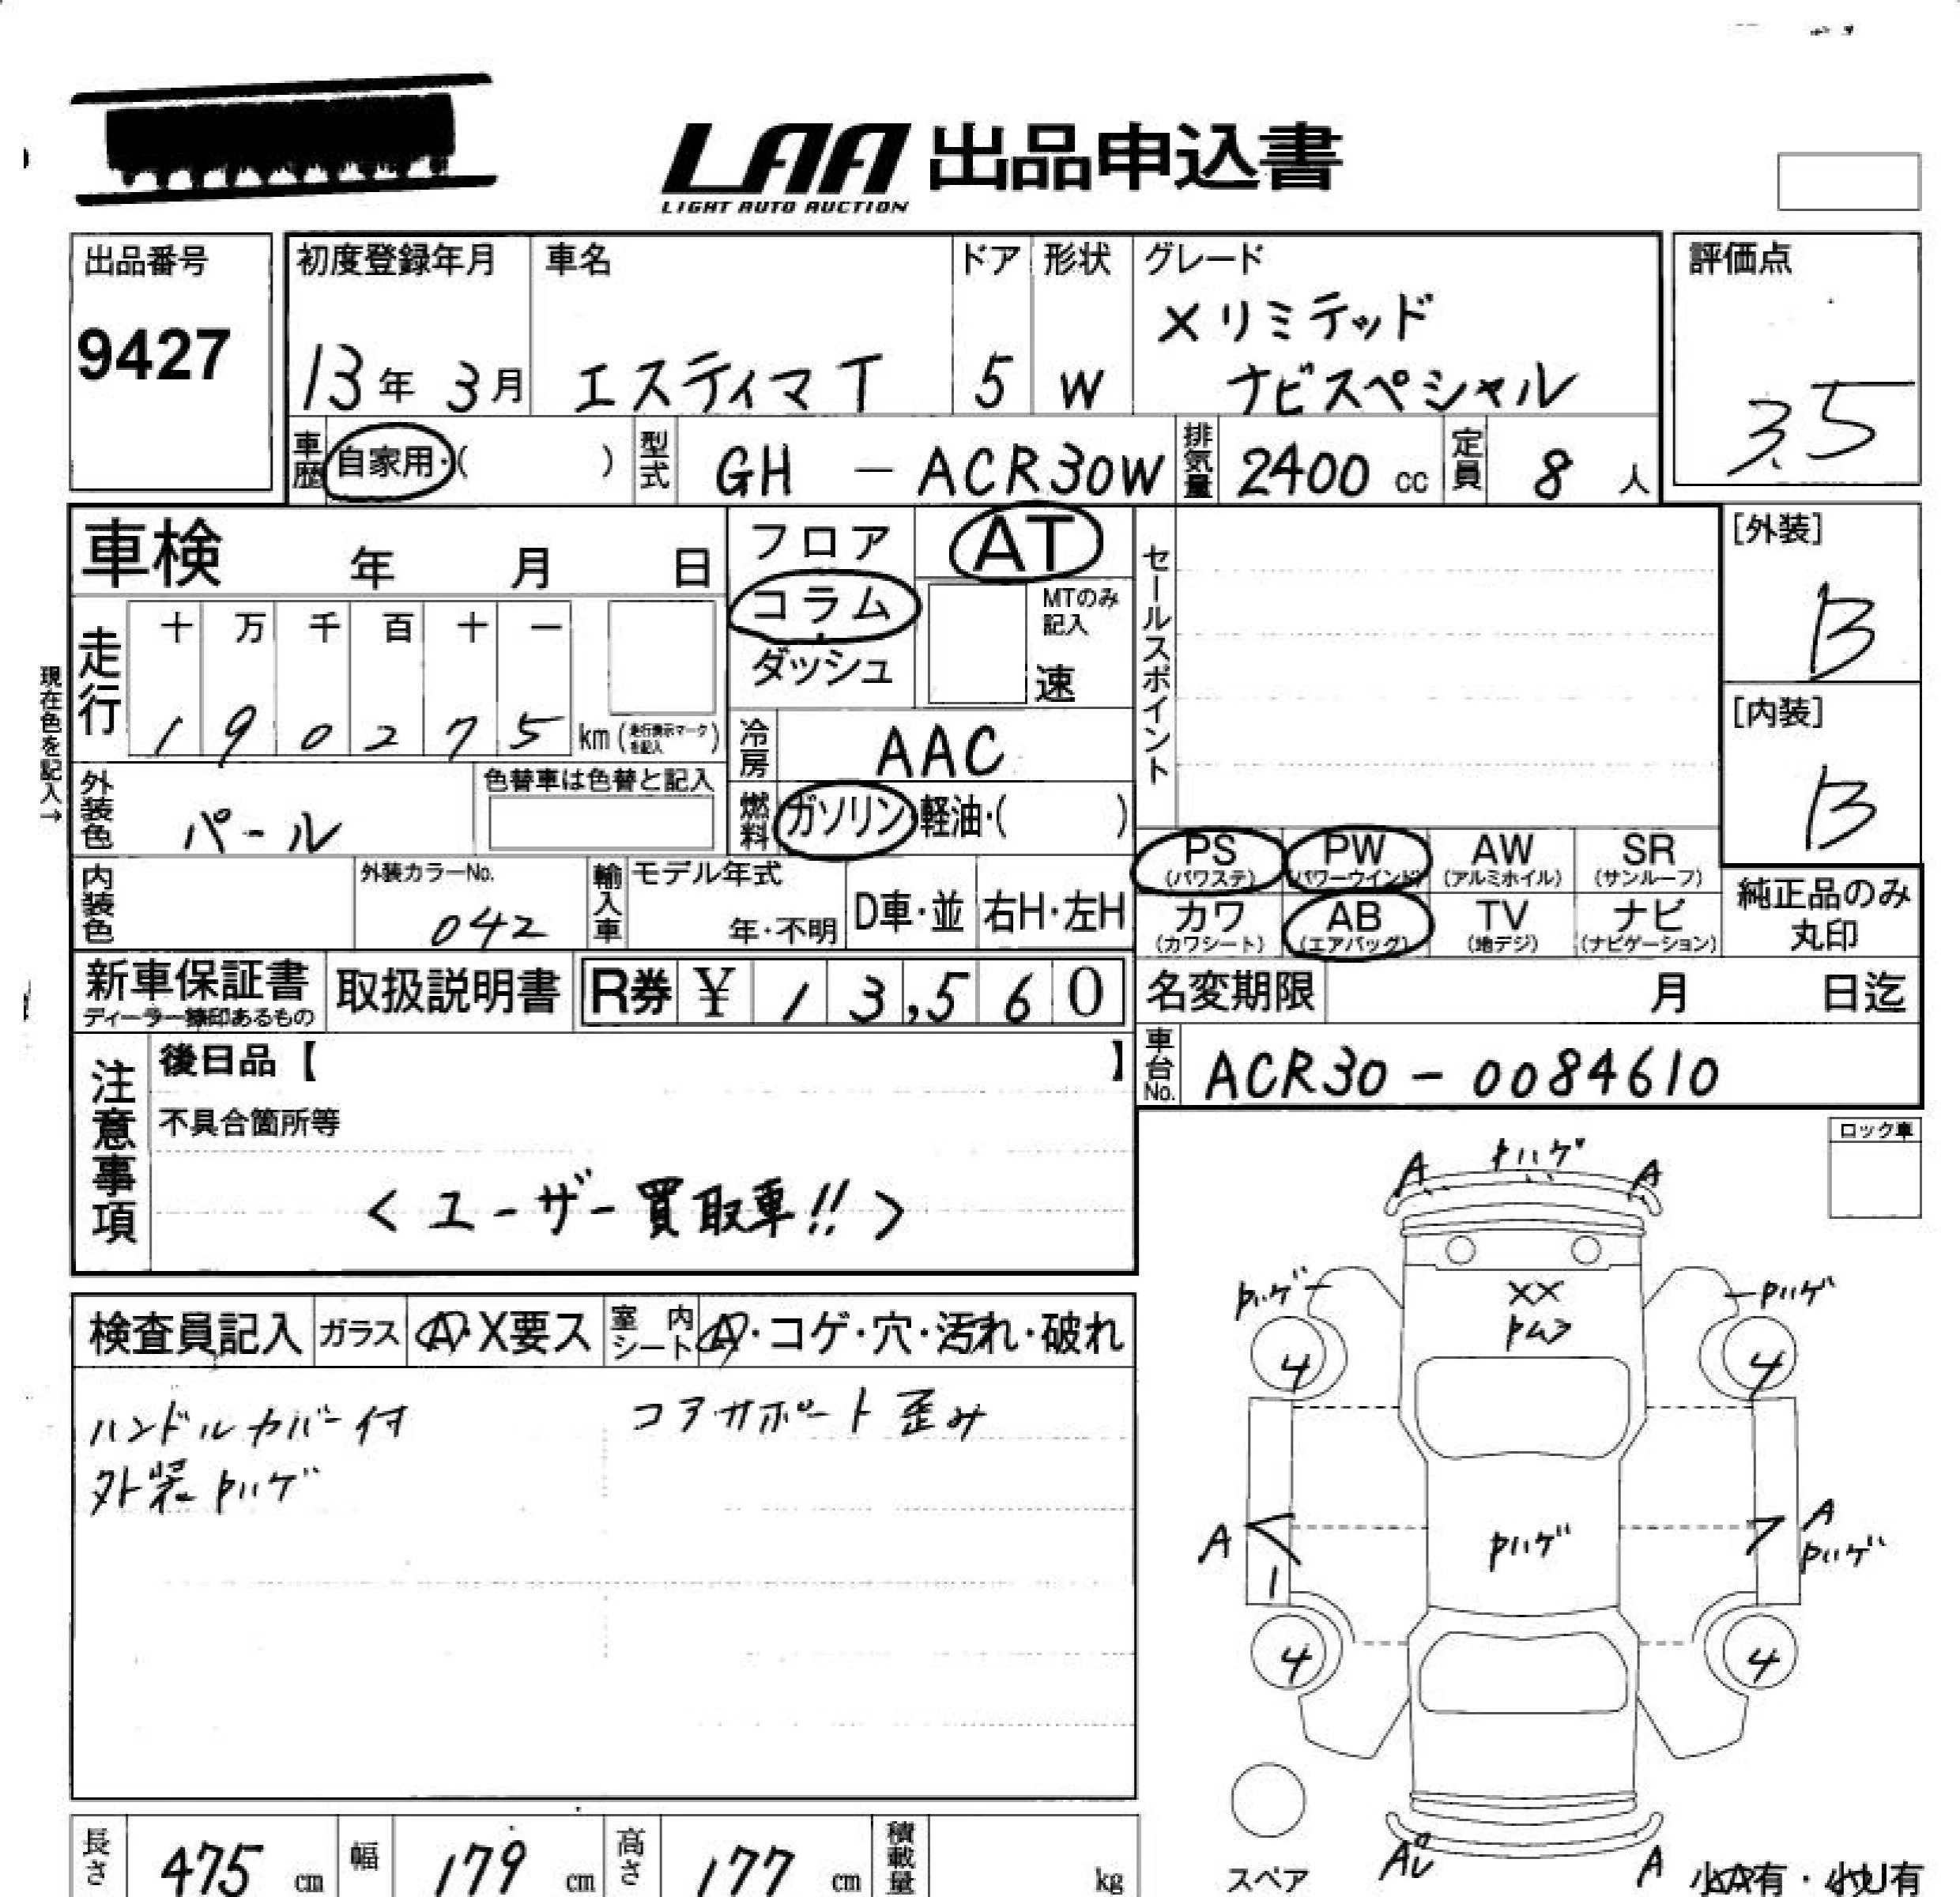 LAA 出品申込書
LIGHT AUTO AUCTION
出品番号
9427
初度登録年月
13年 3月
車名
エスティマT
ドア
5
形状
W
グレード
Xリミテッド
ナビスペシャル
評価点
3.5
車歴
自家用・( )
型式
GH - ACR30W
排気量
2400 cc
定員
8 人
車検 年 月 日
現在色を記入→
走行
十 万 千 百 十 一
1 9 0 2 7 5 km (走行表示マークを記入)
フロア
コラム
ダッシュ
AT
MTのみ記入
速
冷房
AAC
燃料
ガソリン・軽油・( )
セールスポイント
[外装]
B
[内装]
B
外装色
パール
色替車は色替と記入
内装色
外装カラーNo.
042
輸入車
モデル年式
年・不明
D車・並
右H・左H
PS (パワステ)
PW (パワーウインド)
AW (アルミホイル)
SR (サンルーフ)
カワ (カワシート)
AB (エアバッグ)
TV (地デジ)
ナビ (ナビゲーション)
純正品のみ
丸印
新車保証書
ディーラー捺印あるもの
取扱説明書
R券 ¥ 13,560
名変期限 月 日迄
車台No.
ACR30 - 0084610
注意事項
後日品【 】
不具合箇所等
<ユーザー買取車!!>
ロック車
検査員記入
ガラス
A・X要ス
室内シート
A・コゲ・穴・汚れ・破れ
ハンドルカバー付
外装トハゲ
コアサポート歪み
A トハゲ A
トハゲ
トハゲ
XX
トムラ
4 4
A
トハゲ
A
トハゲ
1
4 4
スペア
A A
小A有・小U有
長さ 475 cm
幅 179 cm
高さ 177 cm
積載量 kg